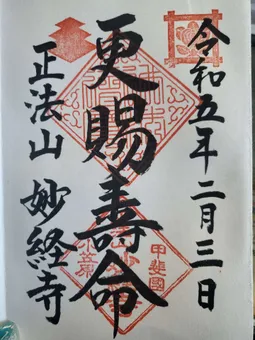 令和五年二月三日
更賜壽命
甲斐國
小笠原
正法山 妙経寺